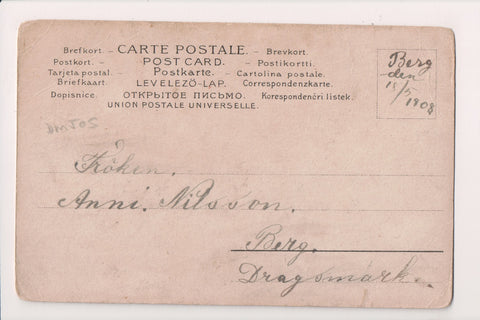 Brefkort. – CARTE POSTALE. – Brevkort.
Postkort. – POST CARD. – Postikortti.
Tarjeta postal. – Postkarte. – Cartolina postale.
Briefkaart. LEVELEZÖ-LAP. Correspondenzkarte.
Dopisnice. ОТКРЫТОЕ ПИСЬМО. Korespondenčri listek.
UNION POSTALE UNIVERSELLE.
Berg
den
15/5
1908
DMJ05
Fröken.
Anni. Nilsson.
Berg.
Dragsmark.